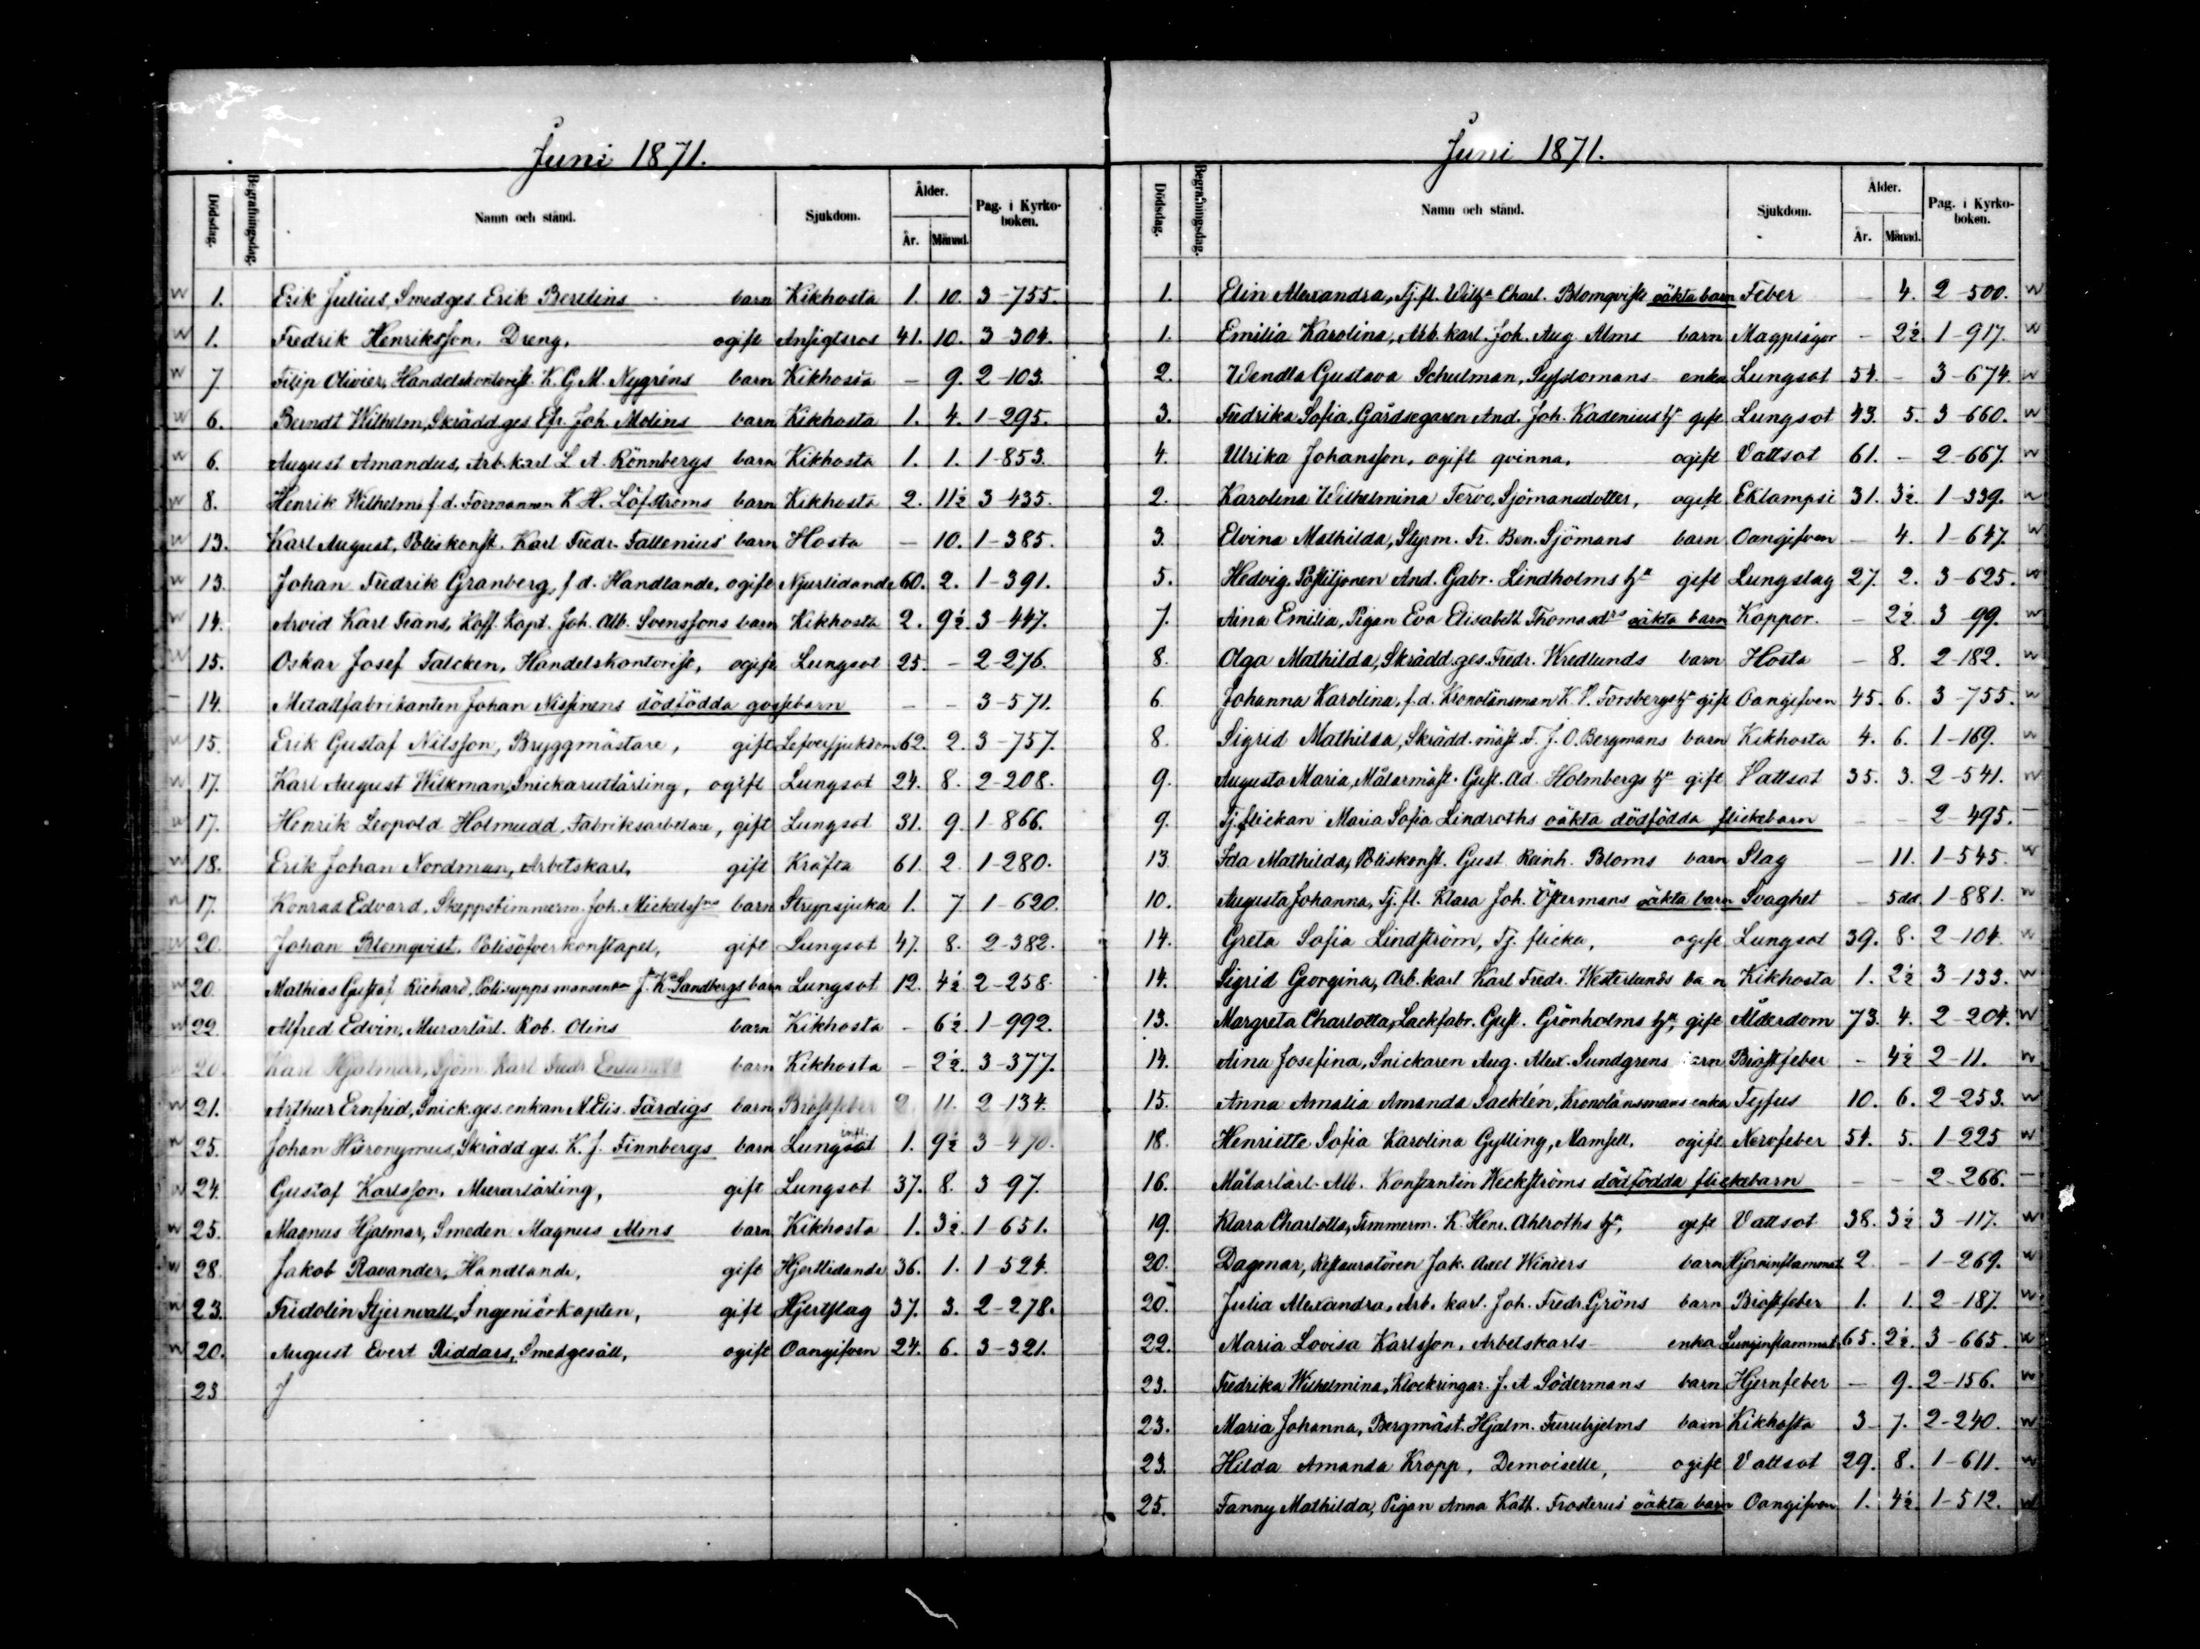 Juni 1871.
Dödsdag. Begrafningsdag. Namn och stånd. Sjukdom. Ålder. År. Månad. Pag. i Kyrko-boken.
w 1. Erik Julius, Smedges. Erik Berelins barn Kikhosta 1. 10. 3-755.
w 1. Fredrik Henriksson, Dreng, ogift Ansigtsros 41. 10. 3-304.
w 7 Filip Olivier, Handelskontorist. K. G. M. Nygréns barn Kikhosta - 9. 2-103.
w 6. Berndt Wilhelm, Skrädd.ges. Efr. Joh. Molins barn Kikhosta 1. 4. 1-295.
w 6. August Amandus, Arb.karl L. A. Rönnbergs barn Kikhosta 1. 1. 1-853.
w 8. Henrik Wilhelm, f.d. Formannen K. H. Löfströms barn Kikhosta 2. 11½ 3-435.
w 13. Karl August, Poliskonst. Karl Fredr. Fallenius barn Hosta - 10. 1-385.
w 13. Johan Fredrik Granberg, f d. Handlande, ogift Njurlidande 60. 2. 1-391.
w 14. Arvid Karl Frans, Koff. Kapt. Joh. Alb. Svenssons barn Kikhosta 2. 9½ 3-447.
w 15. Oskar Josef Falcken, Handelskontorist, ogift Lungsot 25. - 2-276.
- 14. Metallfabrikanten Johan Nissinens dödfödda gossebarn - - 3-571.
w 15. Erik Gustaf Nilsson, Bryggmästare, gift Lefversjukdom 62. 2. 3-757.
w 17. Karl August Wilkman, Snickarutlärling, ogift Lungsot 24. 8. 2-208.
w 17. Henrik Leopold Holmudd, Fabriksarbetare, gift Lungsot 31. 9. 1-866.
w 18. Erik Johan Nordman, Arbetskarl, gift Kräfta 61. 2. 1-280.
w 17. Konrad Edvard, Skeppstimmerm. Joh. Mickelsns barn Strypsjuka 1. 7 1-620.
w 20. Johan Blomqvist, Polisöfverkonstapel, gift Lungsot 47. 8. 2-382.
w 20. Mathias Gustaf Richard, J. K. Sandbergs barn Lungsot 12. 4½ 2-258.
w 22. Alfred Edvin, Murarlärl. Rob. Olins barn Kikhosta - 6½ 1-992.
20. Karl Hjalmar, Sjöm. Karl Fredr. Enlunds barn Kikhosta - 2½. 3-377.
w 21. Arthur Ernfrid, Snick.ges. enkan M. Elis. Färdigs barn Bröstfeber 2 11. 2-134.
w 25. Johan Hieronymus, Skrädd.ges. K. J. Finnbergs barn Lungsot 1. 9½ 3-470.
w 24. Gustaf Karlsson, Murarlärling, gift Lungsot 37. 8. 3-97.
w 25. Magnus Hjalmar, Smeden Magnus Alms barn Kikhosta 1. 3½. 1-651.
w 28. Jakob Ravander, Handlande, gift Hjertlidande 36. 1. 1-524.
w 23. Fridolin Stjernvall, Ingeniörkapten, gift Hjertslag 37. 3. 2-278.
w 20. August Evert Riddars, Smedgesäll, ogift Oangifven 24. 6. 3-321.
23 J
Juni 1871.
Dödsdag. Begrafningsdag. Namn och stånd. Sjukdom. Ålder. År. Månad. Pag. i Kyrko-boken.
1. Elin Alexandra, Tj.fl. Wilha Charl. Blomqvists oäkta barn Feber - 4. 2-500. w
1. Emilia Karolina, Arb. karl. Joh. Aug. Alms barn Magplågor - 2½. 1-917. w
2. Wendla Gustava Schulman, Sysslomans enka Lungsot 54. - 3-674. w
3. Fredrika Sofia, Gårdsegaren And. Joh. Kadenius ha gift Lungsot 43. 5. 3-660. w
4. Ulrika Johansson, ogift qvinna, ogift Vattsot 61. - 2-667. w
2. Karolina Wilhelmina Tervo, Sjömansdotter, ogift Eklampsi 31. 3½. 1-339. w
3. Elvina Mathilda, Styrm. Fr. Ben. Sjömans barn Oangifven - 4. 1-647. w
5. Hedvig, Postiljonen And. Gabr. Lindholms ha gift Lungslag 27. 2. 3-625. w
7. Aina Emilia, Pigan Eva Elisabeth Thomasdrs oäkta barn Koppor. - 2½. 3-99. w
8. Olga Mathilda, Skrädd.ges. Fredr. Wredlunds barn Hosta - 8. 2-182. w
6. Johanna Karolina, f.d. Kronolänsman K. V. Forsbergs ha gift Oangifven 45. 6. 3-755. w
8. Sigrid Mathilda, Skrädd.mäst. F. J. O. Bergmans barn Kikhosta 4. 6. 1-169. w
9. Augusta Maria, Målarmäst. Gust. Ad. Holmbergs ha gift Vattsot 35. 3. 2-541. w
9. Tj.flickan Maria Sofia Lindroths oäkta dödfödda flickebarn - - 2-495. -
13. Ida Mathilda, Poliskonst. Gust. Reinh. Bloms barn Slag - 11. 1-545. w
10. Augusta Johanna, Tj.fl. Klara Joh. Östermans oäkta barn Svaghet - 5 dd. 1-881. w
14. Greta Sofia Lindström, Tj. flicka, ogift Lungsot 39. 8. 2-104. w
14. Sigrid Georgina, Arb.karl Karl Fredr. Westerlunds barn Kikhosta 1. 2½ 3-133. w
13. Margreta Charlotta, Lackfabr. Gust. Grönholms ha, gift Ålderdom 73. 4. 2-204. w
14. Aina Josefina, Snickaren Aug. Alex. Sundgrens barn Bröstfeber - 4½ 2-11. w
15. Anna Amalia Amanda Sacklén, Kronolänsmans enka Tyfus 10. 6. 2-253. w
18. Henriette Sofia Karolina Gylling, Mamsell, ogift Nervfeber 54. 5. 1-225 w
16. Målarlärl. Alb. Konstantin Weckströms dödfödda flickebarn - - 2-266. -
19. Klara Charlotta, Timmerm. K. Henr. Ahlroths ha, gift Vattsot 38. 3½ 3-117. w
20. Dagmar, Restauratören Jak. Axel Winters barn Hjerninflammat. 2 - 1-269. w
20. Julia Alexandra, Arb. karl. Joh. Fredr. Gröns barn Bröstfeber 1. 1. 2-187. w
22. Maria Lovisa Karlsson, Arbetskarls enka Lunginflammat. 65. 2½. 3-665. w
23. Fredrika Wilhelmina, Klockringar. J. A. Södermans barn Hjernfeber - 9. 2-156. w
23. Maria Johanna, Bergmäst. Hjalm. Furuhjelms barn Kikhosta 3 7. 2-240. w
23. Hilda Amanda Kropp, Demoiselle, ogift Vattsot 29. 8. 1-611. w
25. Fanny Mathilda, Pigan Anna Kath. Frosterus oäkta barn Oangifven 1. 4½. 1-512. w